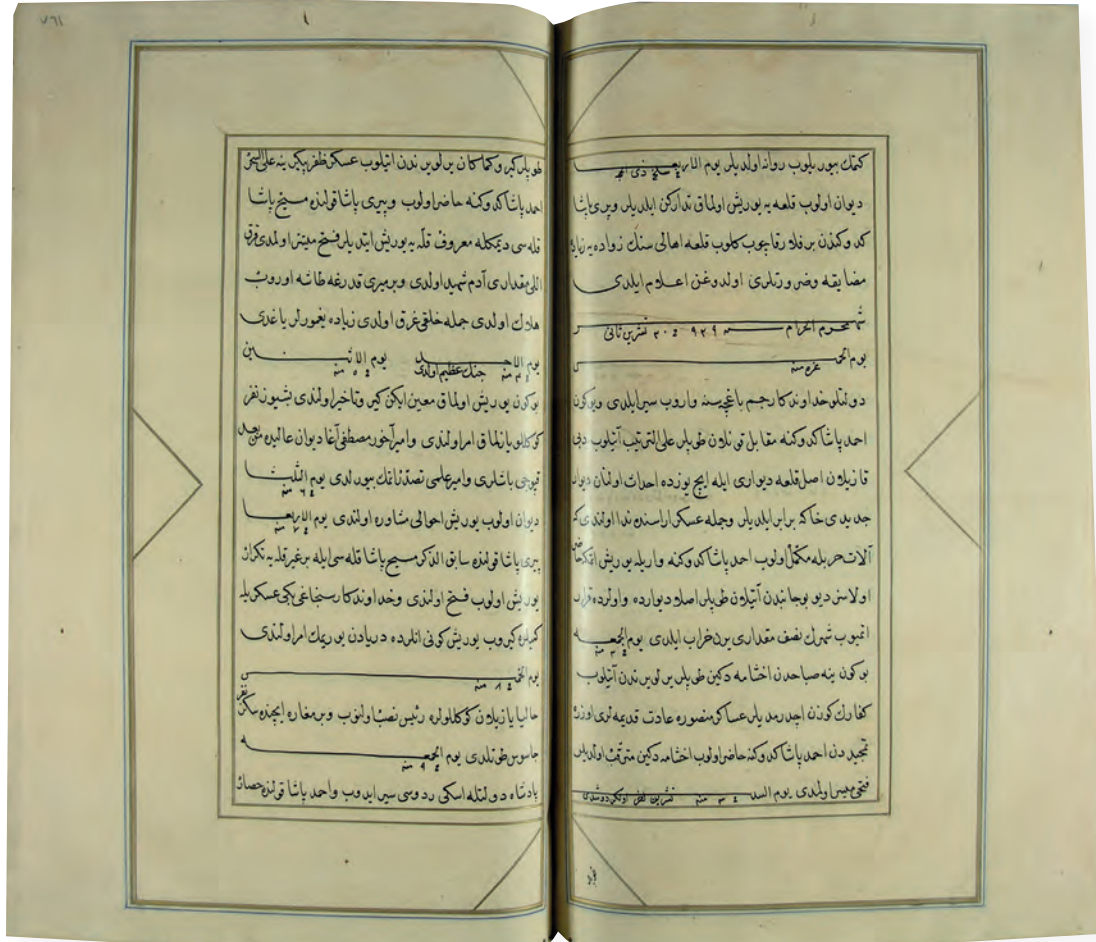 كتمك بيوريلوب روانه اولديلر يوم الاربعا سلخ ذى الحجه
ديوان اولوب قلعه يه يوريش اولماق تداركن ايلديلر وپيرى پاشا
كدوكندن بر فلار قاچوب كلوب قلعه اهالى سنك زواده يه زياده
مضايقه وضرورتلرى اولدوغن اعلام ايلدى
شهر محرم الحرام سنه ٩٢٩ تشرين ثانى
يوم الخميس غره منه
دولتلو خداوندكار رجم باغچسنه واروب سير ايلدى وبوكون
احمد پاشا كدوكنه مقابل قونلان طوپلر على الترتيب آتيلوب دبى
قازيلان اصل قلعه ديوارى ايله ايچ يوزده احداث اولنان ديوار
جديدى خاكه برابر ايلديلر وجمله عسكر اراسنده ندا اولندى كه
آلات حربله مكمل اولوب احمد پاشا كدوكنه واريله يوريش اتمكه حاضر
اولاسز ديو بوجانبدن آتيلان طوپلر اصلا ديوارده واولرده قرار
اتميوب شهرك نصف مقدارى يرن خراب ايلدى يوم الجمعه ٢ منه
بوكون ينه صباحدن اخشامه دكين طوپلر يرلويرندن آتيلوب
كفارك كوزن اچدرمديلر عساكر منصوره عادت قديمه لرى اوزره
تمجيددن احمد پاشا كدوكنه حاضر اولوب اخشامه دكين مترقب اولديلر
فتحى ميسر اولمدى يوم السبت ٣ منه
طوپلر كيرو كماكان يرلويرندن اتيلوب عسكر ظفرپيكر ينه على السحر
احمد پاشا كدوكنه حاضر اولوب وپيرى پاشا قولنده مسيح پاشا
قله سى ديمكله معروف قله يه يوريش ايتديلر فتح ميسر اولمدى قرق
اللى مقدارى آدم شهيد اولدى وبر ميرى قدرغه طاشه اوروب
هلاك اولدى جمله خلقى غرق اولدى زياده يغمورلر ياغدى
يوم الاحد ٤ منه جنك عظيم اولدى يوم الاثنين ٥ منه
بوكون يوريش اولماق معين ايكن كيرو تاخير اولندى بشيوز نفر
كوكللو يازلماق امر اولندى وامير آخور مصطفى آغا ديوان عاليده من بعد
قپوجى باشلرى وامير علمى تصدر اتمك بيورلدى يوم الثلثا ٦ منه
ديوان اولوب يوريش احوالى مشاوره اولندى يوم الاربعا ٧ منه
پيرى پاشا قولنده سابق الذكر مسيح پاشا قله سى ايله بر غير قله يه تكرار
يوريش اولوب فتح اولندى وخداوندكار سنجاغى بكى عسكريله
كميلره كيروب يوريش كونى انلرده دريادن يوريمك امر اولندى
يوم الخميس ٨ منه
حاليا يازيلان كوكللولره رئيس نصب اولنوب وبر مغاره ايچنده سكز نفر
جاسوس طوتلدى يوم الجمعه ٩ منه
پادشاه دولتله اسكى ردوسى سير ايدوب واحمد پاشا قولنده حصار